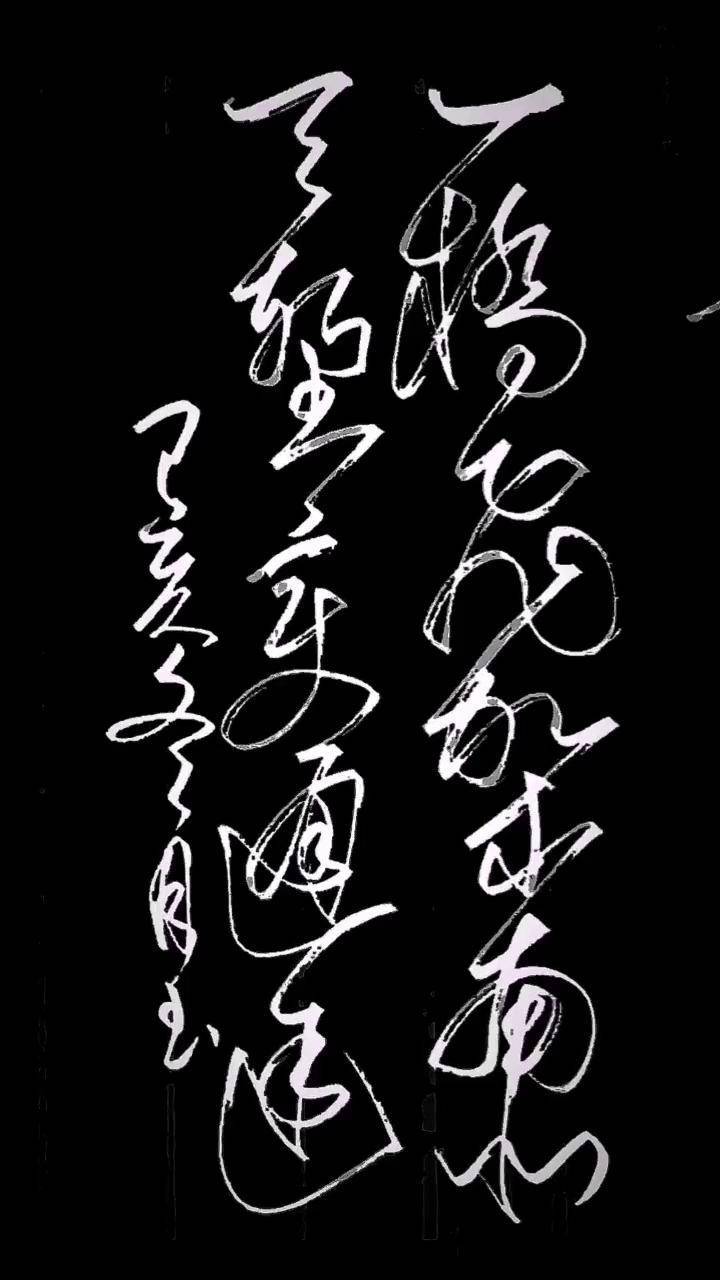 一桥飞架南北
天堑变通途
己亥冬月玉